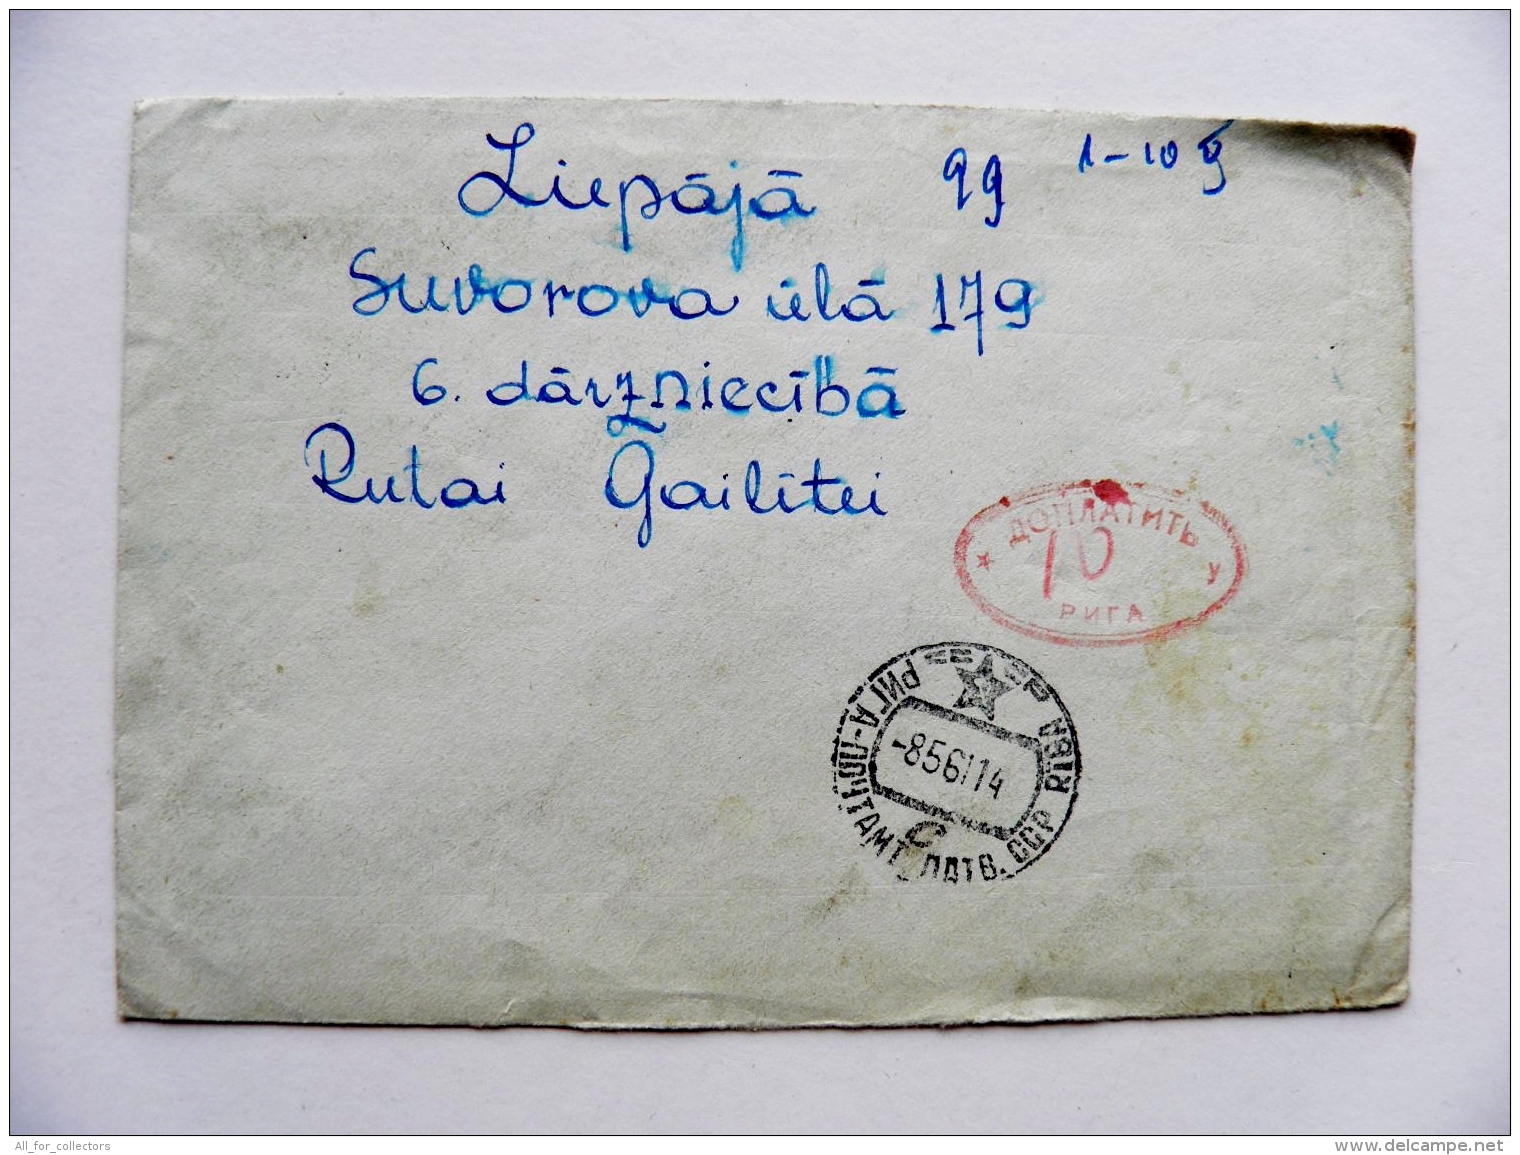 Liepājā 99 1-10
Suvorova ielā 179
6. dārzniecībā
Rutai Gailītei
ДОПЛАТИТЬ
10
У
РИГА
РИГА-ПОЧТАМТ ЛАТВ. ССР RIGA P
-8561114
С
All_for_collectors
www.delcampe.net